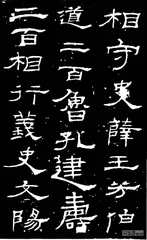 相守史薛王芳伯
道二百魯孔建壽
二百相行義史文陽